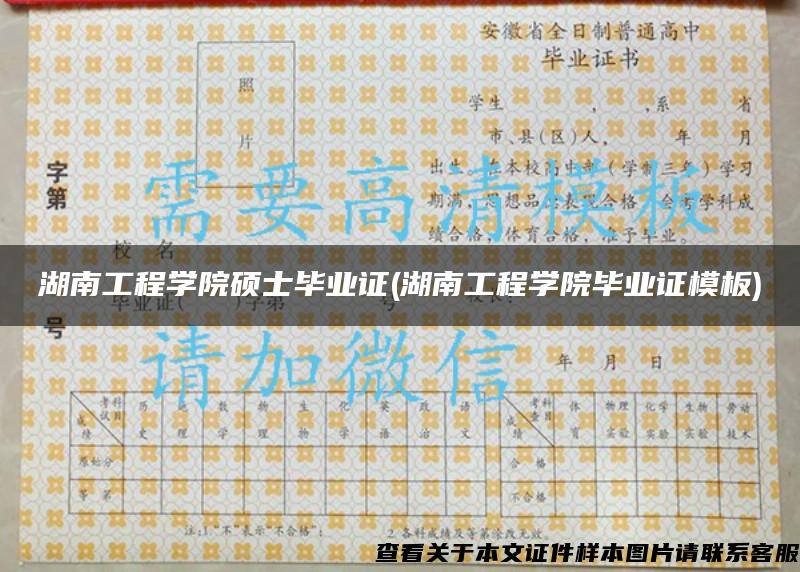 安徽省全日制普通高中
毕业证书
照
片
学生 , ,系 省
市、县(区)人, 年 月
出生,在本校高中部(学制三年)学习
期满,思想品德表现合格,会考学科成
绩合格,体育合格,准予毕业。
字第
号
需要高清模板
校 名
湖南工程学院硕士毕业证(湖南工程学院毕业证模板)
毕业证( )字第 号
请加微信
年 月 日
考试科目 历史 地理 数学 物理 生物 化学 英语 政治 语文
成绩
原始分
等 第
考查科目 体育 物理实验 化学实验 生物实验 劳动技术
成绩
合 格
不合格
注:1."不"表示"不合格"; 2.各科成绩及等第涂改无效。
查看关于本文证件样本图片请联系客服